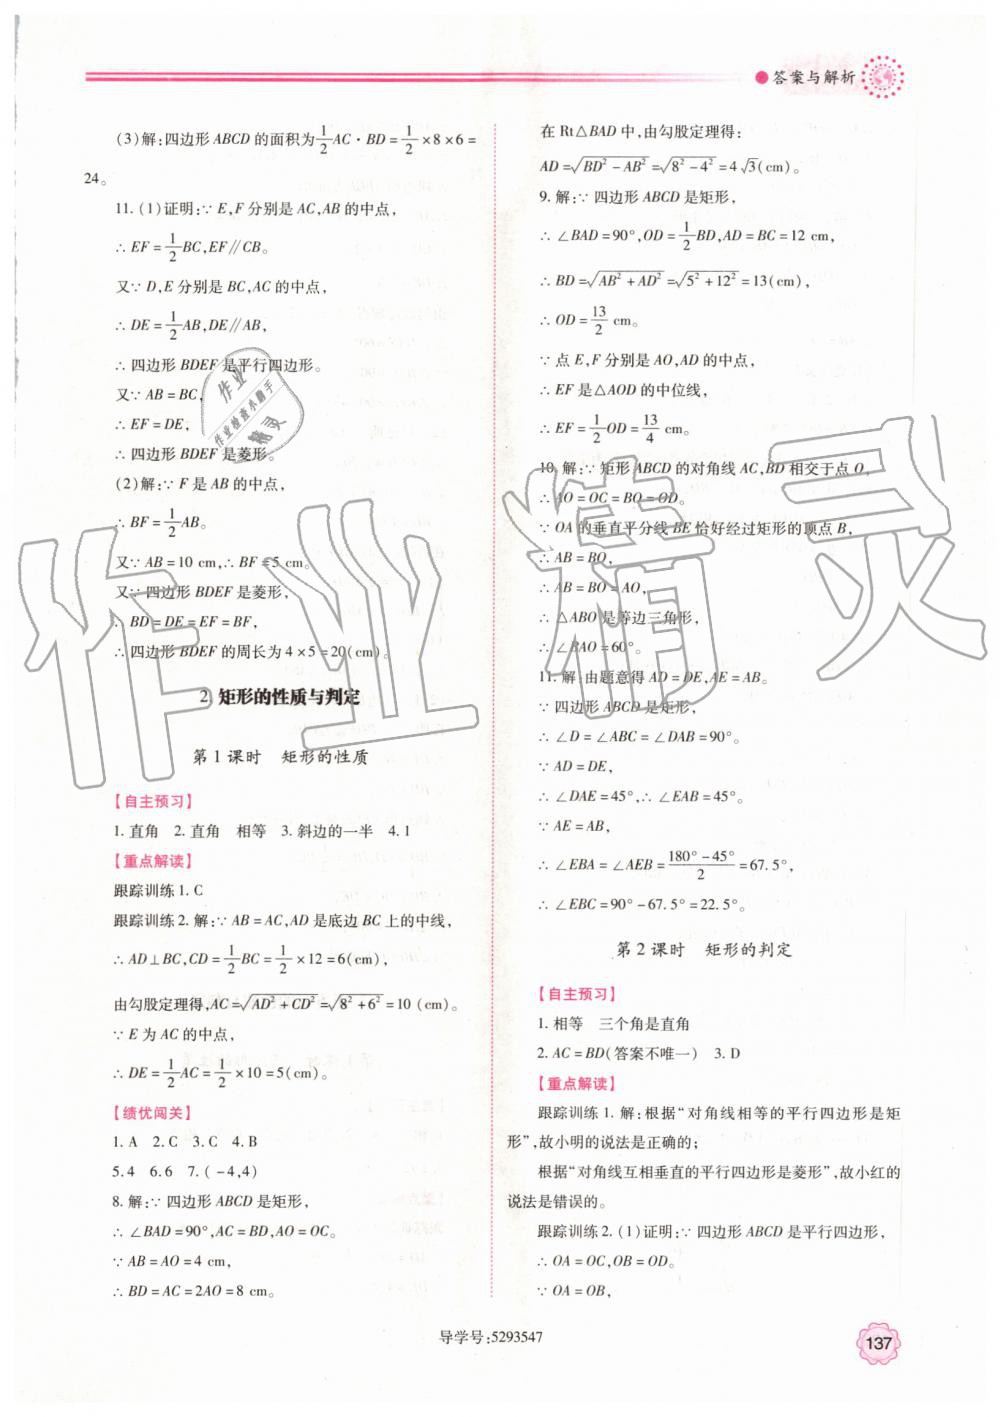 答案与解析
(3)解:四边形 ABCD 的面积为 1/2 AC·BD = 1/2 ×8×6 =
24。
11.(1)证明:∵ E,F 分别是 AC,AB 的中点,
∴ EF = 1/2 BC,EF∥CB。
又∵ D,E 分别是 BC,AC 的中点,
∴ DE = 1/2 AB,DE∥AB,
∴ 四边形 BDEF 是平行四边形。
又∵ AB = BC,
∴ EF = DE,
∴ 四边形 BDEF 是菱形。
(2)解:∵ F 是 AB 的中点,
∴ BF = 1/2 AB。
又∵ AB = 10 cm,∴ BF = 5 cm。
又∵ 四边形 BDEF 是菱形,
∴ BD = DE = EF = BF,
∴ 四边形 BDEF 的周长为 4×5 = 20(cm)。
2 矩形的性质与判定
第 1 课时 矩形的性质
【自主预习】
1. 直角 2. 直角 相等 3. 斜边的一半 4. 1
【重点解读】
跟踪训练 1. C
跟踪训练 2. 解:∵ AB = AC,AD 是底边 BC 上的中线,
∴ AD⊥BC,CD = 1/2 BC = 1/2 ×12 = 6(cm),
由勾股定理得,AC = √(AD² + CD²) = √(8² + 6²) = 10 (cm)。
∵ E 为 AC 的中点,
∴ DE = 1/2 AC = 1/2 ×10 = 5(cm)。
【绩优闯关】
1. A 2. C 3. C 4. B
5. 4 6. 6 7. ( -4,4)
8. 解:∵ 四边形 ABCD 是矩形,
∴ ∠BAD = 90°,AC = BD,AO = OC。
∵ AB = AO = 4 cm,
∴ BD = AC = 2AO = 8 cm。
在 Rt△BAD 中,由勾股定理得:
AD = √(BD² - AB²) = √(8² - 4²) = 4√3(cm)。
9. 解:∵ 四边形 ABCD 是矩形,
∴ ∠BAD = 90°,OD = 1/2 BD,AD = BC = 12 cm,
∴ BD = √(AB² + AD²) = √(5² + 12²) = 13(cm),
∴ OD = 13/2 cm。
∵ 点 E,F 分别是 AO,AD 的中点,
∴ EF 是△AOD 的中位线,
∴ EF = 1/2 OD = 13/4 cm。
10. 解:∵ 矩形 ABCD 的对角线 AC,BD 相交于点 O,
∴ AO = OC = BO = OD。
∵ OA 的垂直平分线 BE 恰好经过矩形的顶点 B,
∴ AB = BO,
∴ AB = BO = AO,
∴ △ABO 是等边三角形,
∴ ∠BAO = 60°。
11. 解:由题意得 AD = DE,AE = AB。
∵ 四边形 ABCD 是矩形,
∴ ∠D = ∠ABC = ∠DAB = 90°。
∵ AD = DE,
∴ ∠DAE = 45°,∴ ∠EAB = 45°。
∵ AE = AB,
∴ ∠EBA = ∠AEB = (180° - 45°)/2 = 67. 5°。
∴ ∠EBC = 90° - 67. 5° = 22. 5°。
第 2 课时 矩形的判定
【自主预习】
1. 相等 三个角是直角
2. AC = BD(答案不唯一) 3. D
【重点解读】
跟踪训练 1. 解:根据“对角线相等的平行四边形是矩
形”,故小明的说法是正确的;
根据“对角线互相垂直的平行四边形是菱形”,故小红的
说法是错误的。
跟踪训练 2. (1)证明:∵ 四边形 ABCD 是平行四边形,
∴ OA = OC,OB = OD。
∵ OA = OB,
作业
作业检查小助手
精灵
作业精灵
导学号:5293547
137